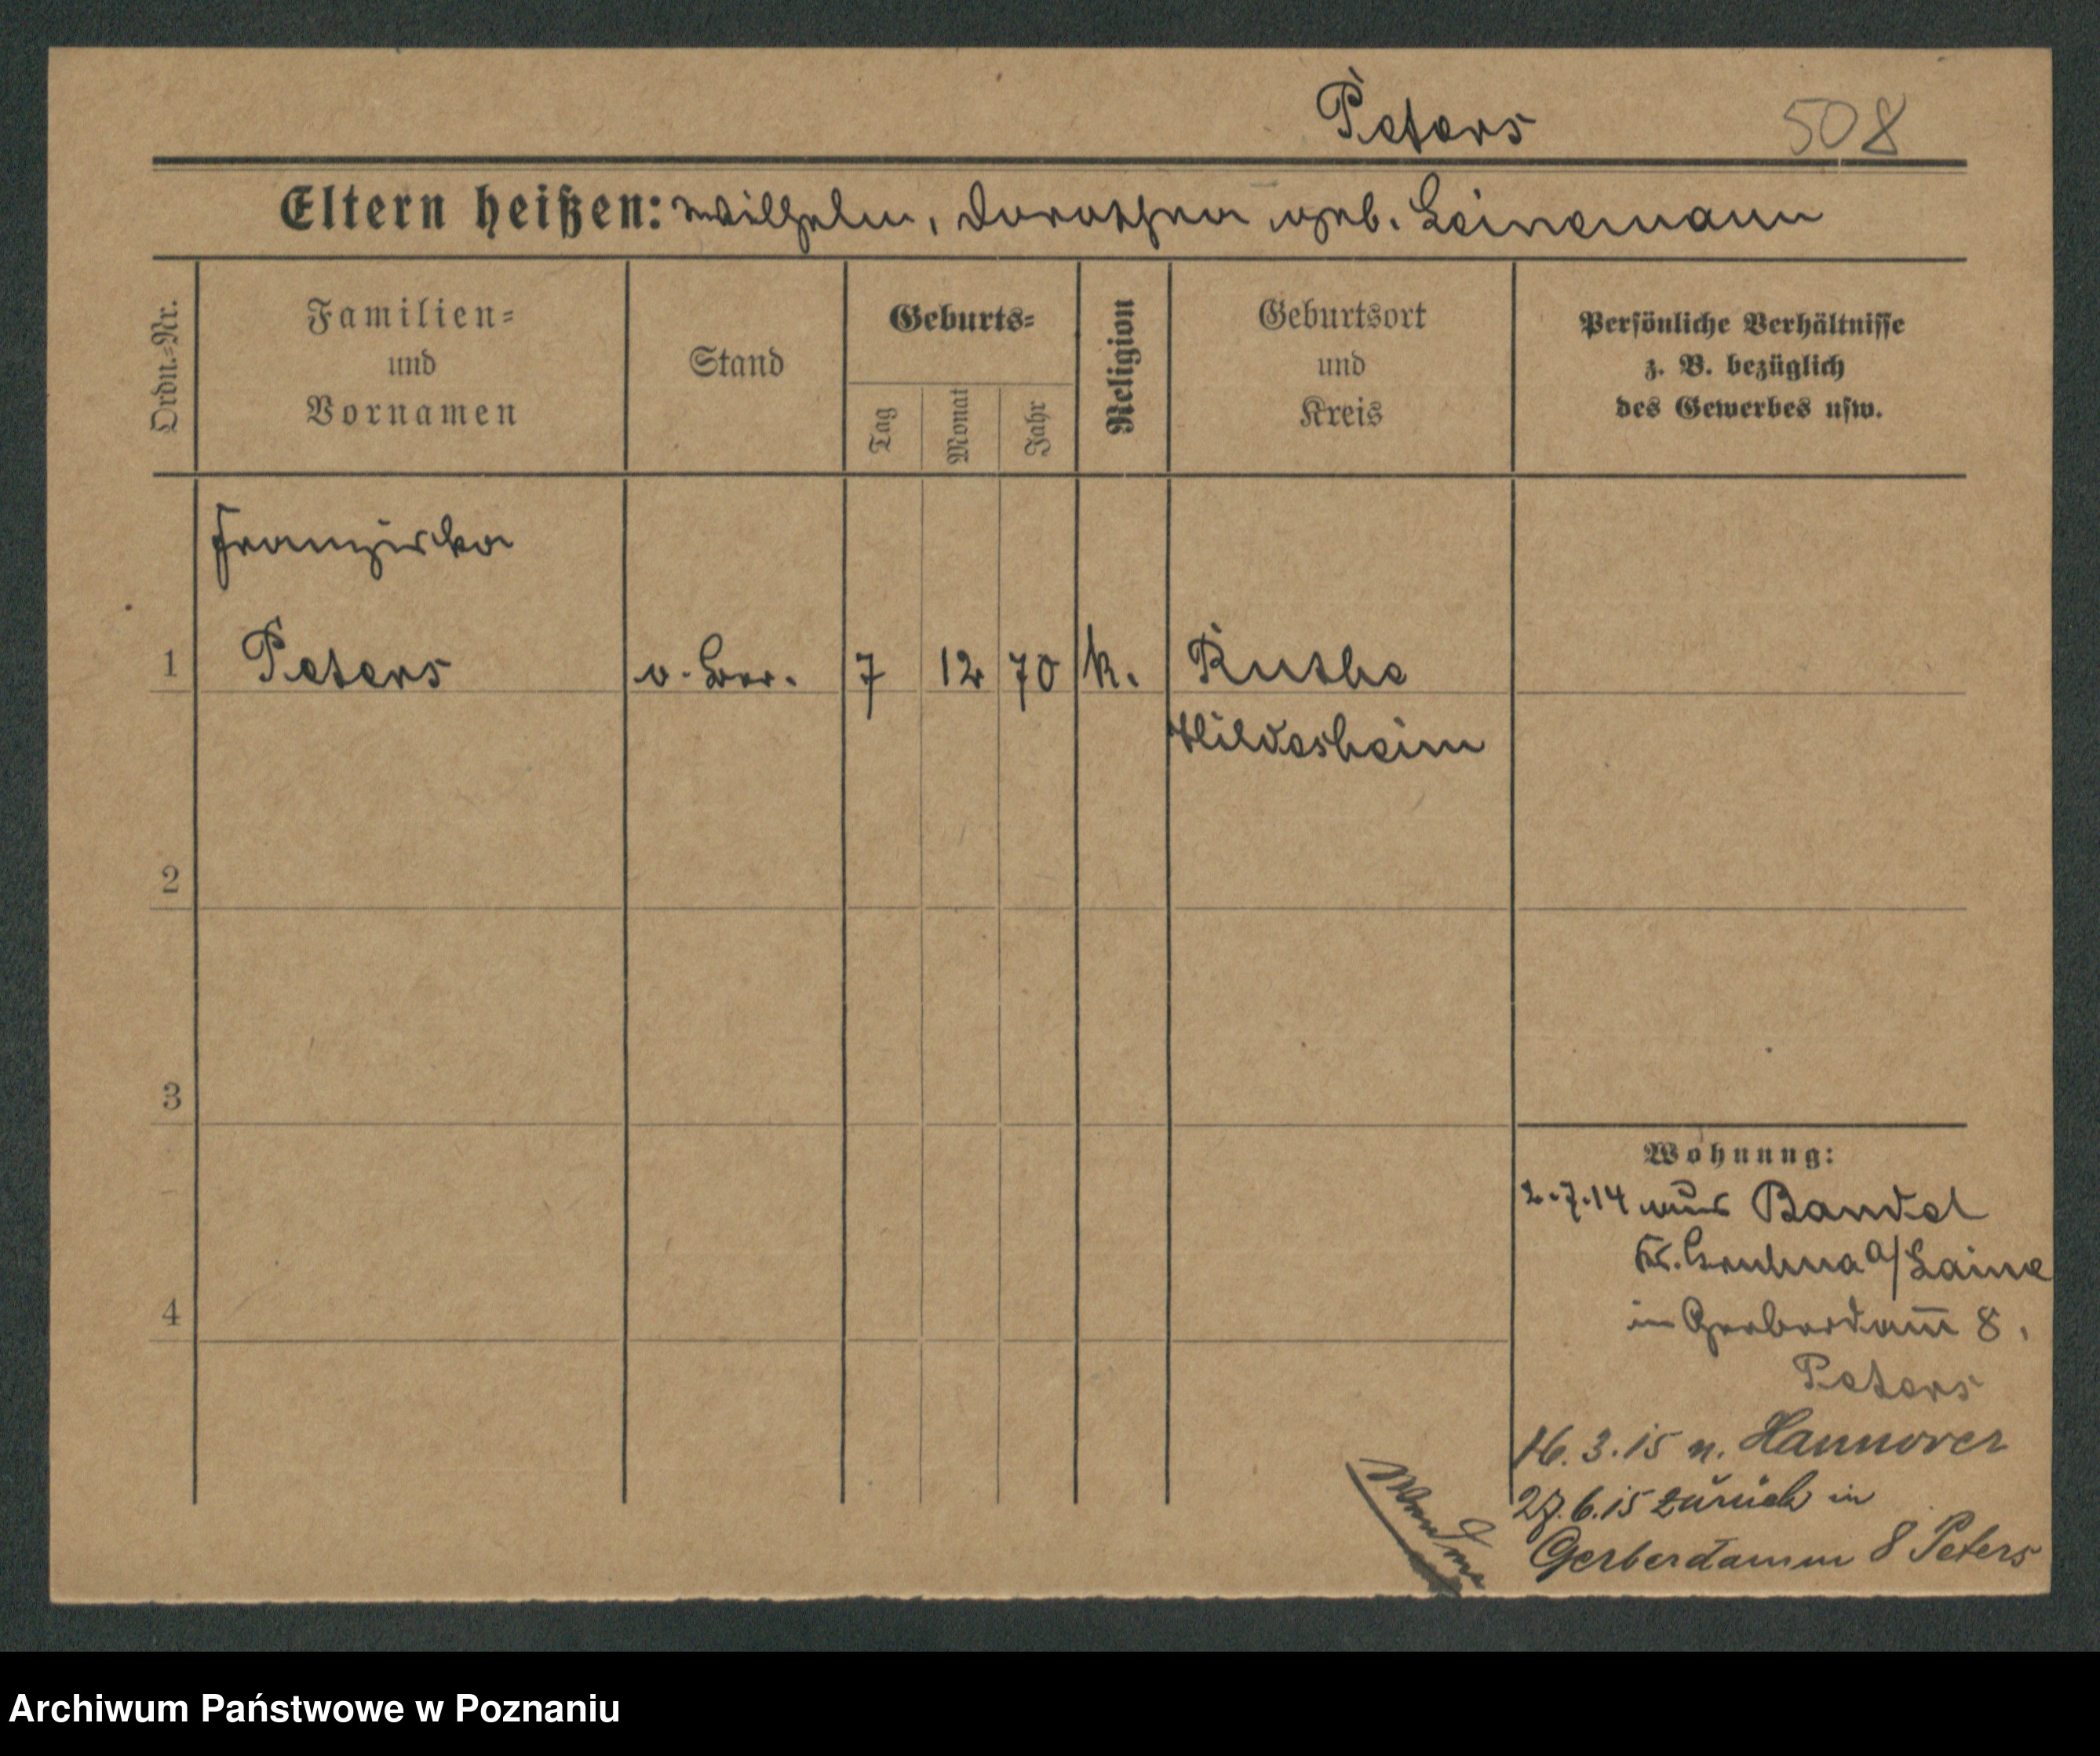 Peters 508
Eltern heißen: Wilhelm, Dorothea geb. Leinemann
Ordn.-Nr.
Familien- und Vornamen
Stand
Geburts-
Tag
Monat
Jahr
Religion
Geburtsort und Kreis
Persönliche Verhältnisse z. B. bezüglich des Gewerbes usw.
Franziska
1 Peters o. Ber. 7 12 70 k. Ruthe
Hildesheim
2
3
4
Wohnung:
2.7.14 aus Banteln
Kr. a/Leine
in Gerberdamm 8.
Peters
16.3.15 n. Hannover
27.6.15 zurück in
Gerberdamm 8 Peters
Archiwum Państwowe w Poznaniu